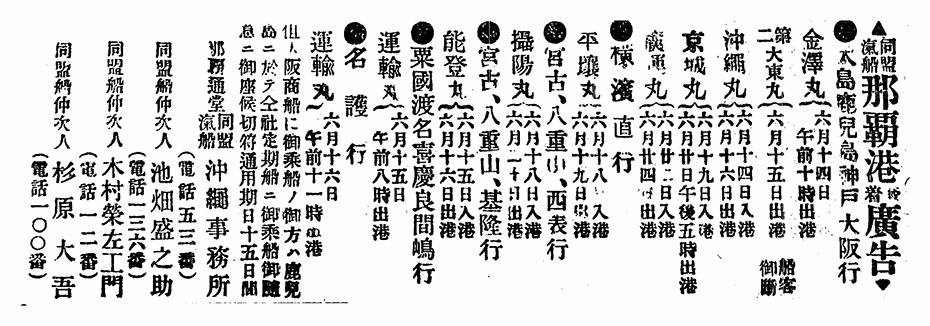 ▲同盟汽船那覇港發着廣告▼
●大島鹿兒島神戸大阪行
金澤丸 六月十四日 午前十時出港
第二大東丸 六月十五日出港 船客御斷
沖繩丸 六月十四日入港 六月十六日出港
京城丸 六月十九日入港 六月廿日午後五時出港
廣運丸 六月廿二日入港 六月廿四日出港
●横濱直行
平壤丸 六月十八日入港 六月十九日出港
●宮古、八重山、西表行
攝陽丸 六月十八日入港 六月二十日出港
●宮古、八重山、基隆行
能登丸 六月十五日入港 六月十六日出港
●粟國渡名喜慶良間嶋行
運輸丸 六月十五日 午前八時出港
●名護行
運輸丸 六月十六日 午前十一時出港
但大阪商船に御乘船ノ御方ハ鹿兒
島ニ於テ仝社定期船ニ御乘船御隨
意ニ御座候切符通用期日十五日間
那覇通堂 同盟汽船 沖繩事務所
(電話五三番)
同盟船仲次人 池畑盛之助
(電話一三六番)
同盟船仲次人 木村榮左工門
(電話一二番)
同盟船仲次人 杉原大吾
(電話一〇〇番)